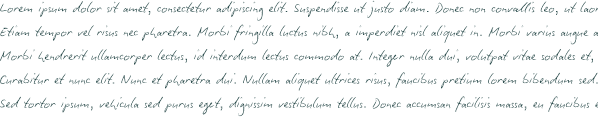 Lorem ipsum dolor sit amet, consectetur adipiscing elit. Suspendisse ut justo diam. Donec non convallis leo, ut laor
Etiam tempor vel risus nec pharetra. Morbi fringilla luctus nibh, a imperdiet nisl aliquet in. Morbi varius augue a
Morbi hendrerit ullamcorper lectus, id interdum lectus commodo at. Integer nulla dui, volutpat vitae sodales et,
Curabitur et nunc elit. Nunc et pharetra dui. Nullam aliquet ultrices risus, faucibus pretium lorem bibendum sed.
Sed tortor ipsum, vehicula sed purus eget, dignissim vestibulum tellus. Donec accumsan facilisis massa, eu faucibus e